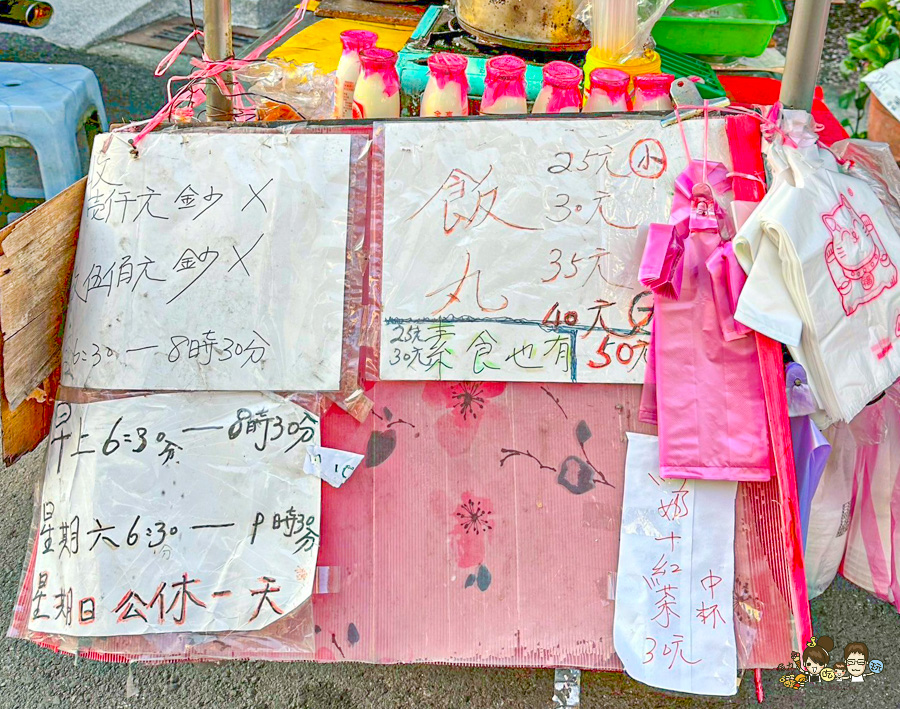 壹仟元 鈔 X
伍佰元 鈔 X
6:30 — 8時30分
飯丸
25元 小
30元
35元
40元 大
50元
25元
30元
素食也有
早上 6:30分 — 8時30分
星期六 6:30分 — 9時30分
星期日 公休一天
奶+紅茶
中杯
30元